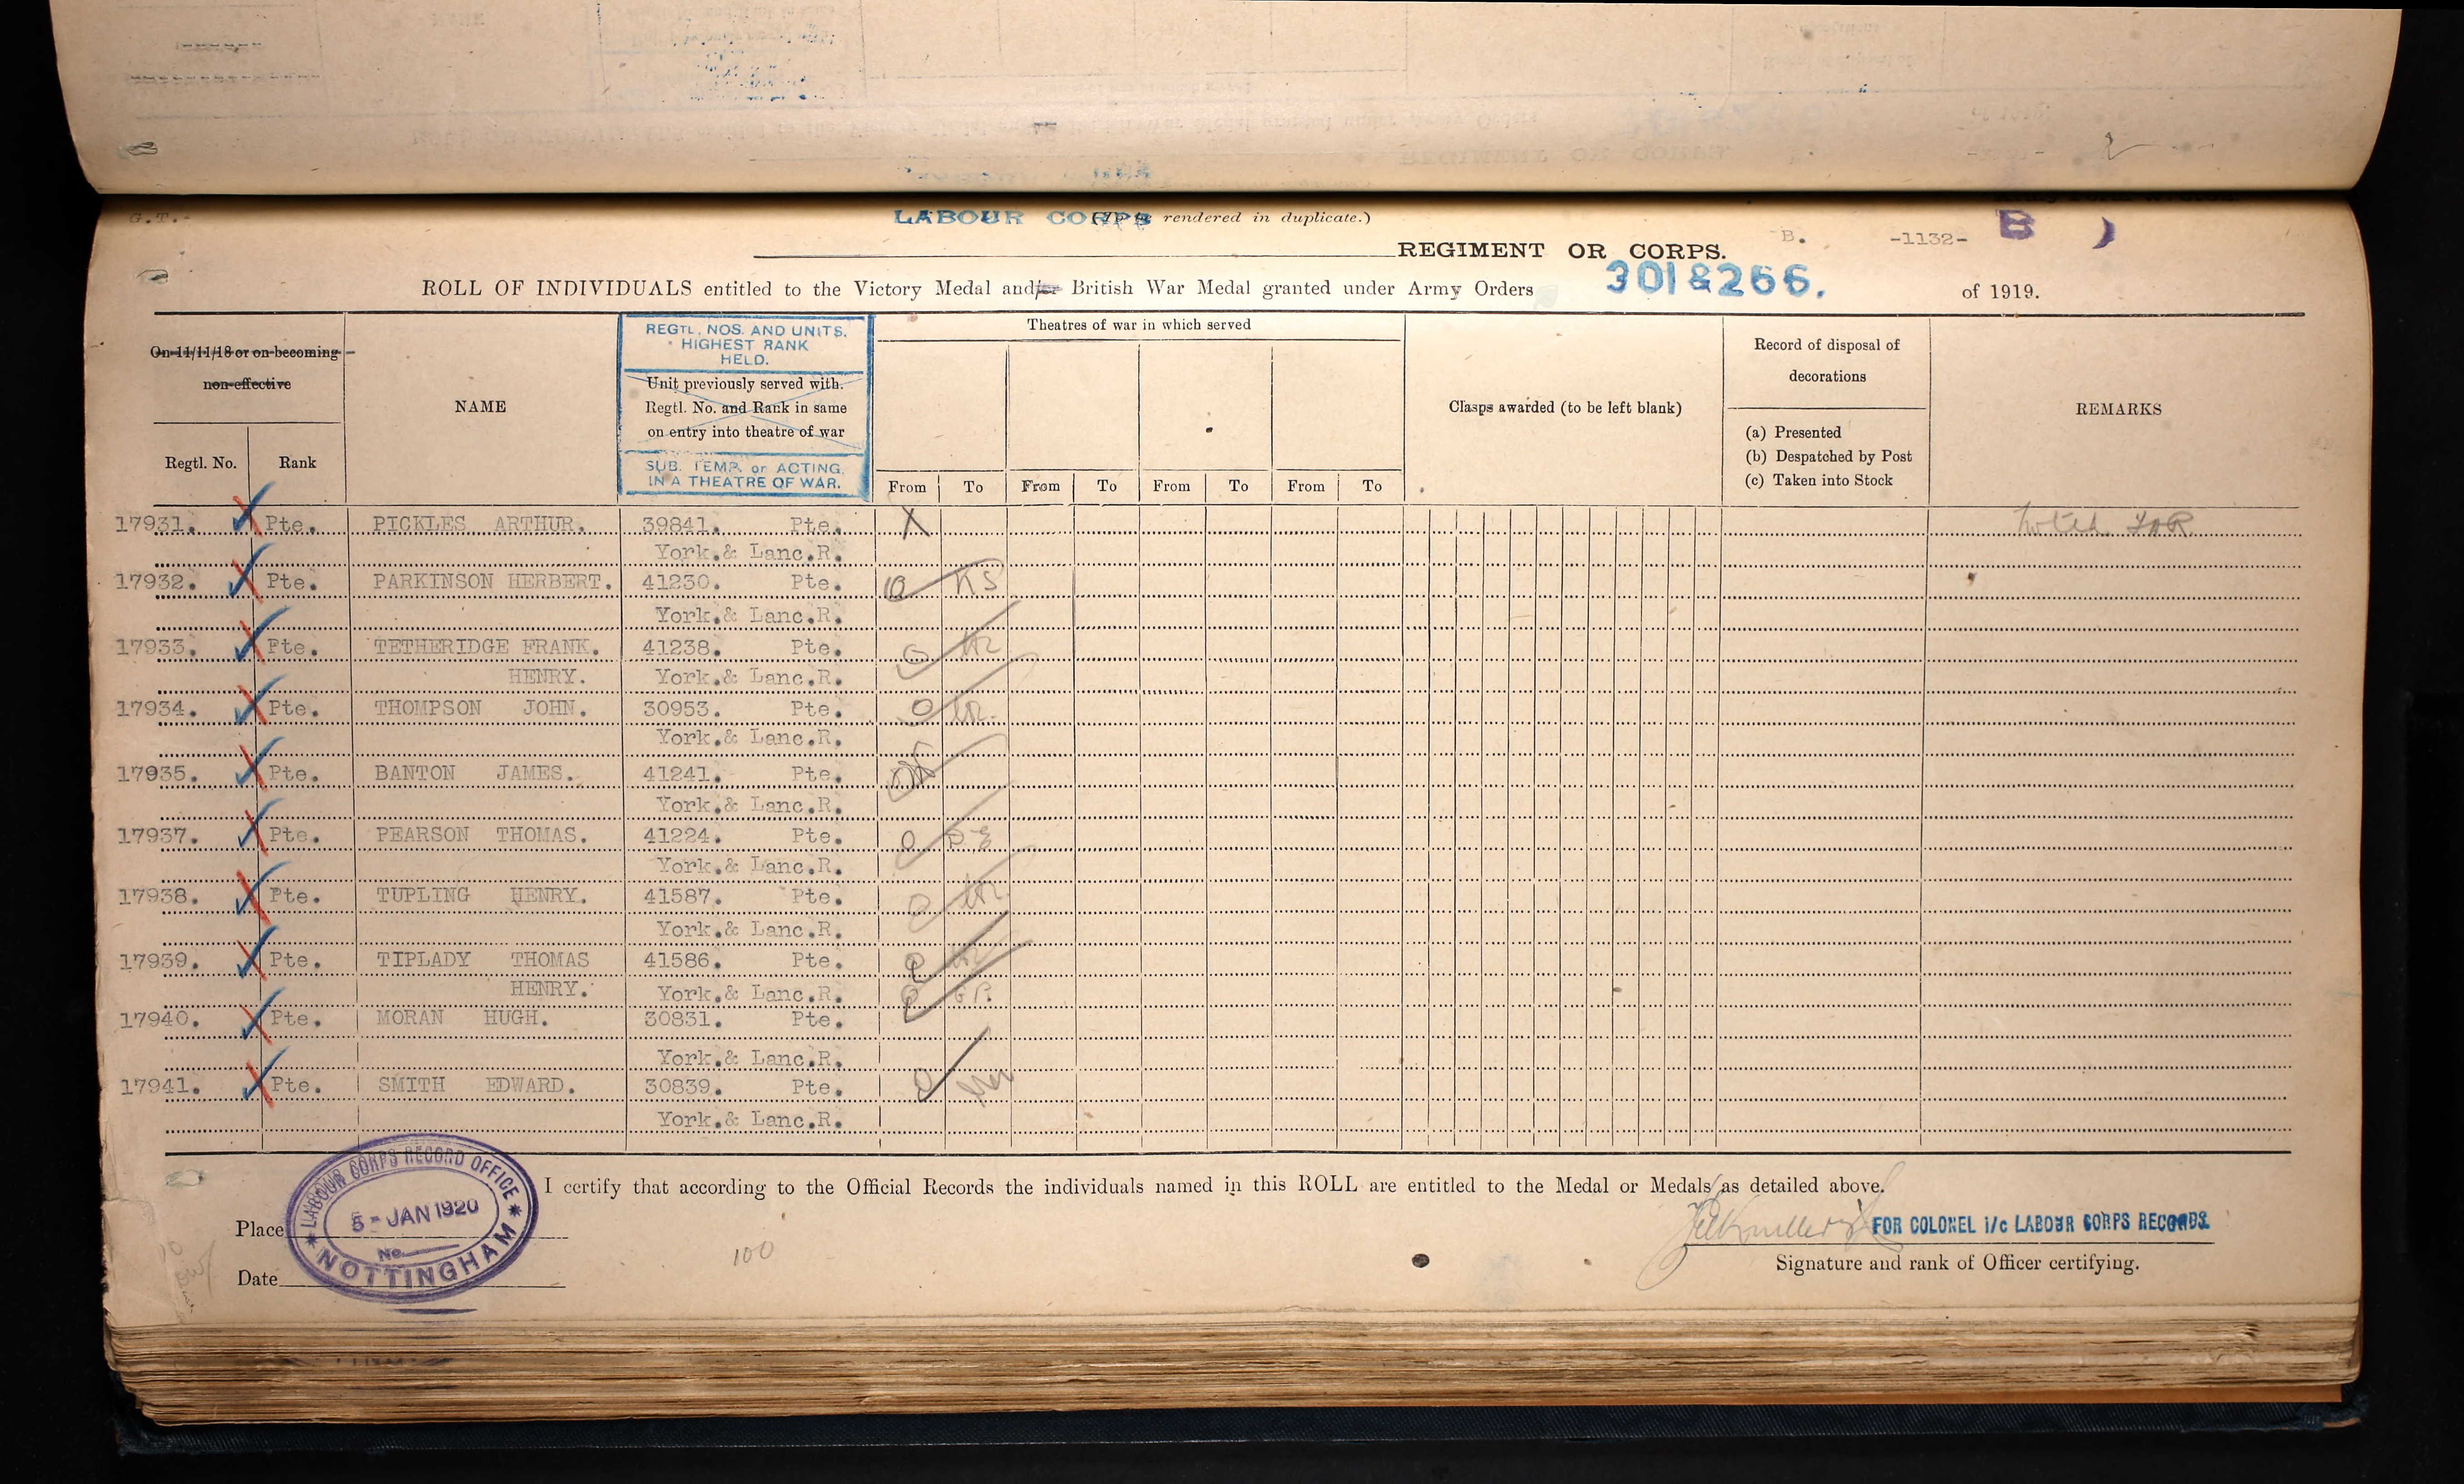 G.T.-
LABOUR CORPS
rendered in duplicate.)
B. -1132- B
REGIMENT OR CORPS.
ROLL OF INDIVIDUALS entitled to the Victory Medal and/or British War Medal granted under Army Orders 301 & 266. of 1919.
On 11/11/18 or on becoming non-effective
Regtl. No.
Rank
NAME
REGTL. NOS. AND UNITS.
HIGHEST RANK
HELD.
Unit previously served with.
Regtl. No. and Rank in same
on entry into theatre of war
SUB. TEMP. or ACTING.
IN A THEATRE OF WAR.
Theatres of war in which served
From To From To From To From To
Clasps awarded (to be left blank)
Record of disposal of
decorations
(a) Presented
(b) Despatched by Post
(c) Taken into Stock
REMARKS
17931. Pte. PICKLES ARTHUR. 39841. Pte. X
York.& Lanc.R.
17932. Pte. PARKINSON HERBERT. 41230. Pte. KS
York.& Lanc.R.
17933. Pte. TETHERIDGE FRANK. 41238. Pte.
HENRY. York.& Lanc.R.
17934. Pte. THOMPSON JOHN. 30953. Pte.
York.& Lanc.R.
17935. Pte. BANTON JAMES. 41241. Pte.
York.& Lanc.R.
17937. Pte. PEARSON THOMAS. 41224. Pte.
York.& Lanc.R.
17938. Pte. TUPLING HENRY. 41587. Pte.
York.& Lanc.R.
17939. Pte. TIPLADY THOMAS 41586. Pte.
HENRY. York.& Lanc.R.
17940. Pte. MORAN HUGH. 30831. Pte.
York.& Lanc.R.
17941. Pte. SMITH EDWARD. 30839. Pte.
York.& Lanc.R.
I certify that according to the Official Records the individuals named in this ROLL are entitled to the Medal or Medals as detailed above.
LABOUR CORPS RECORD OFFICE
5 - JAN 1920
No.
NOTTINGHAM
Place
Date
100
FOR COLONEL i/c LABOUR CORPS RECORDS.
Signature and rank of Officer certifying.